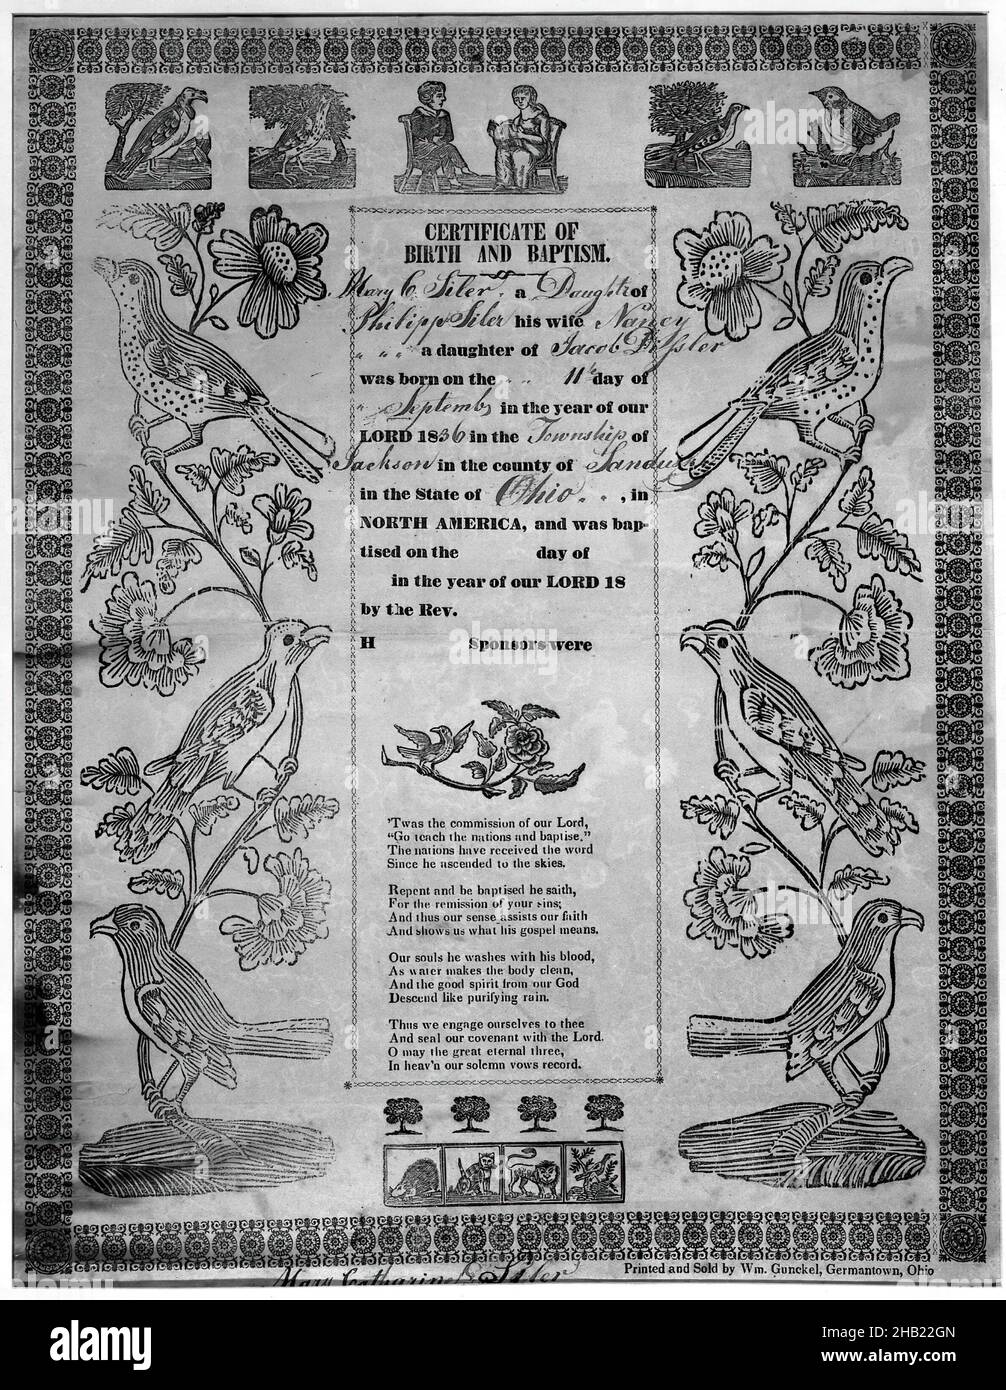 CERTIFICATE OF
BIRTH AND BAPTISM.
Mary C. Siler, a Daughter of
Philipp Siler his wife Nancy
a daughter of Jacob
was born on the 11th day of
September in the year of our
LORD 1836 in the Township of
Jackson in the county of
in the State of Ohio . . , in
NORTH AMERICA, and was bap-
tised on the day of
in the year of our LORD 18
by the Rev.
H Sponsors were
'Twas the commission of our Lord,
"Go teach the nations and baptise."
The nations have received the word
Since he ascended to the skies.
Repent and be baptised he saith,
For the remission of your sins;
And thus our sense assists our faith
And shows us what his gospel means.
Our souls he washes with his blood,
As water makes the body clean,
And the good spirit from our God
Descend like purifying rain.
Thus we engage ourselves to thee
And seal our covenant with the Lord.
O may the great eternal three,
In heav'n our solemn vows record.
Printed and Sold by Wm. Gunckel, Germantown, Ohio
Mary Catharine Siler
alamy
Image ID: 2HB22GN
www.alamy.com